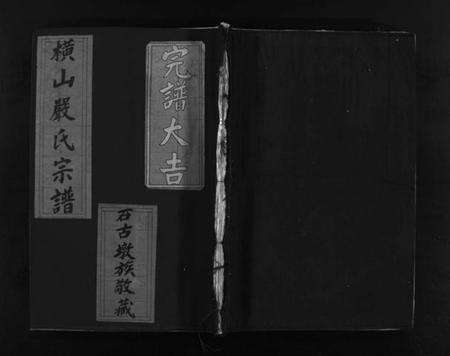 完譜大吉
石古墩族敬藏
橫山嚴氏宗譜